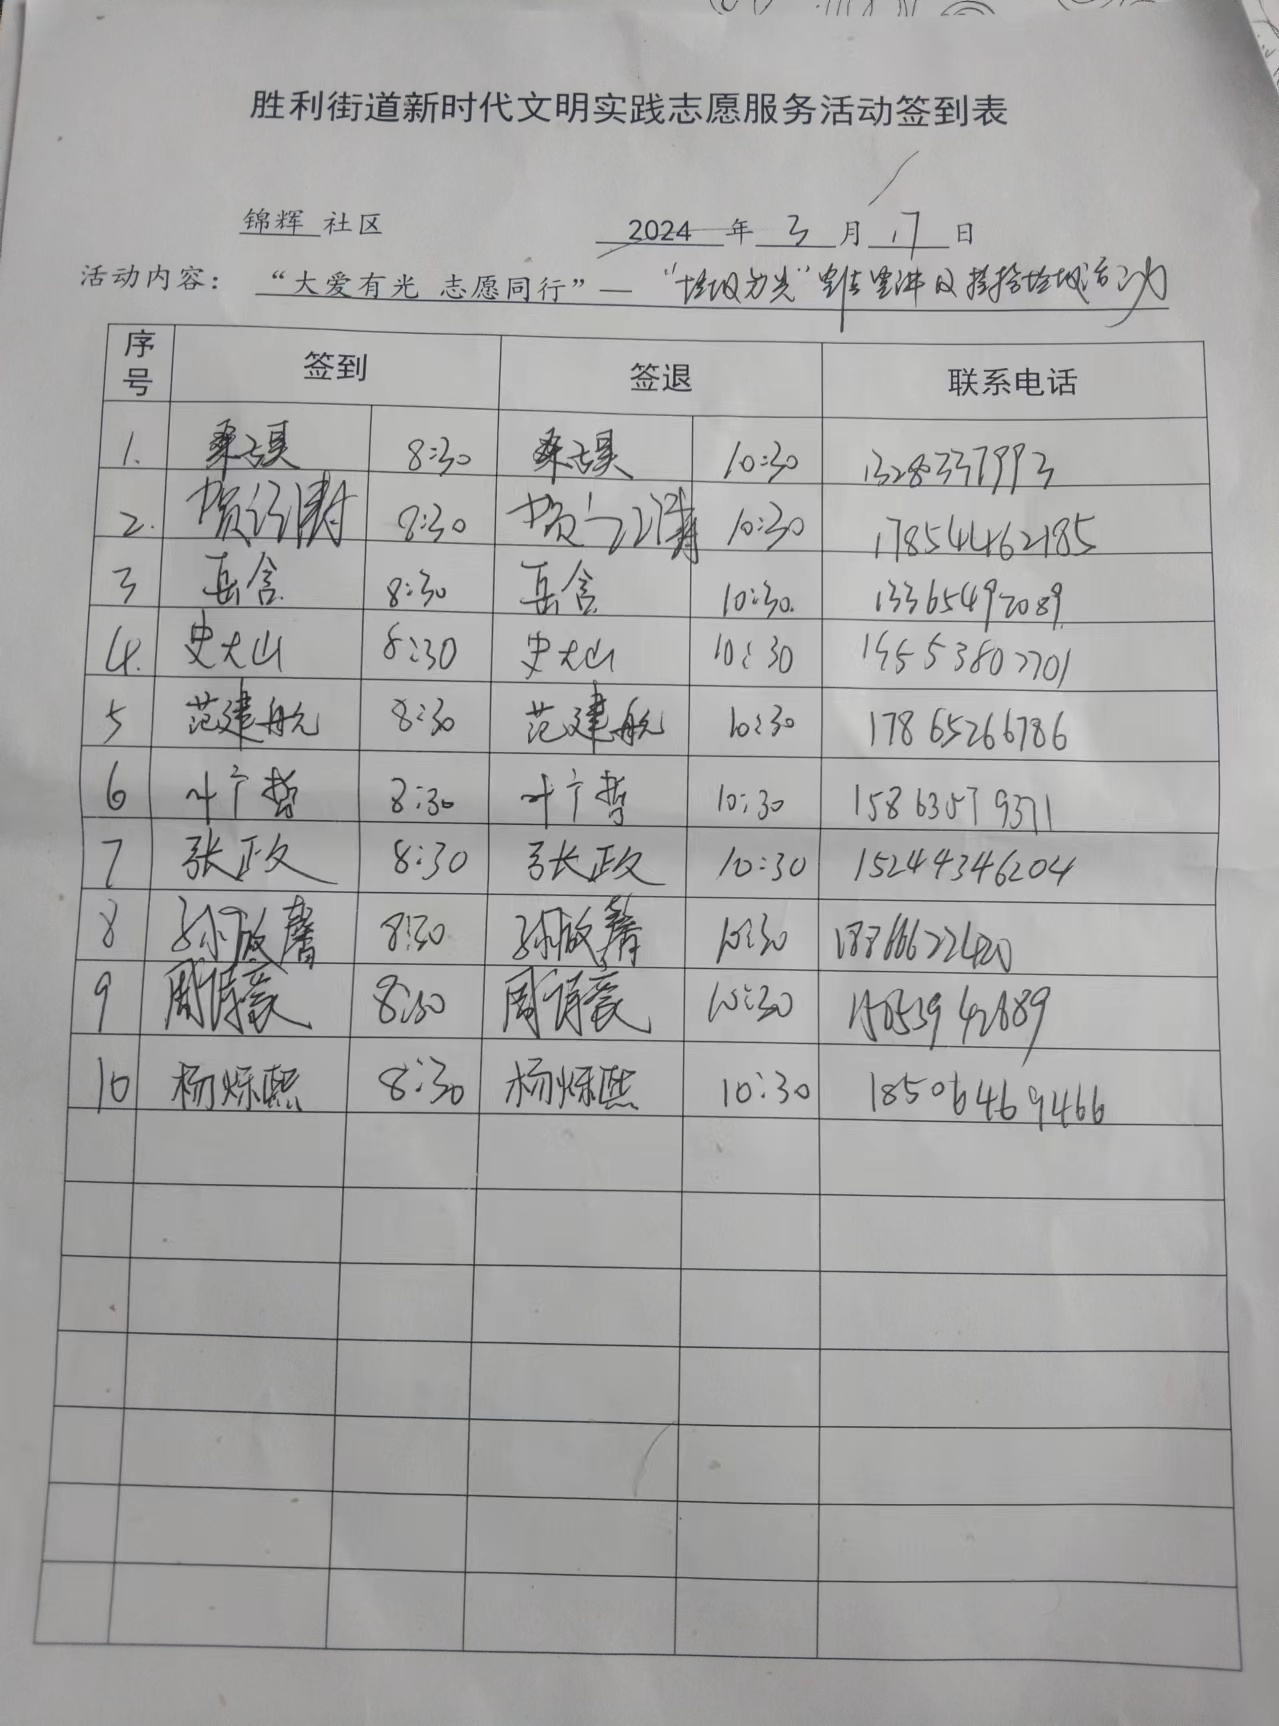 胜利街道新时代文明实践志愿服务活动签到表
锦辉 社区 2024 年 3 月 17 日
活动内容：“大爱有光 志愿同行”— “垃圾分类”宣传宣讲及捡拾垃圾活动
序号 签到 签退 联系电话
1. 8:30 10:30 13283377993
2. 8:30 10:30 17854462185
3 岳含 8:30 岳含 10:30. 13365497089
4. 史大山 8:30 史大山 10:30 19553807701
5 范建航 8:30 范建航 10:30 17865266786
6 叶宁哲 8:30 叶宁哲 10:30 15863579371
7 张政 8:30 张政 10:30 15244346204
8 8:30 10:30
9 周诗豪 8:30 周诗豪 10:30
10 杨烁熙 8:30 杨烁熙 10:30 18506469466